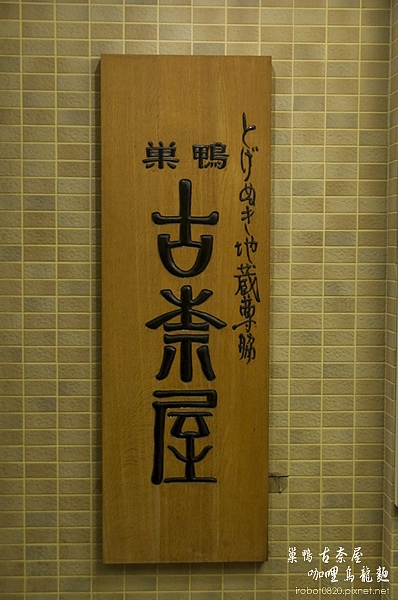 とげぬき地蔵尊脇
巣鴨
古奈屋
巣鴨 古奈屋
咖哩烏龍麵
irobot0820.pixnet.net